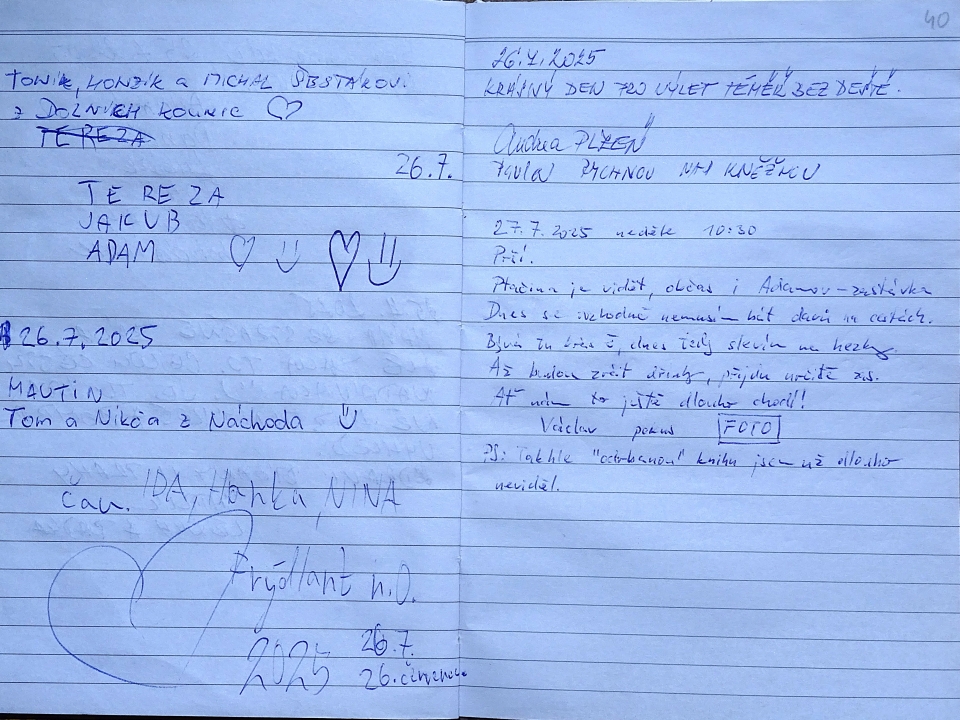 TONÍK, HONZÍK a MICHAL ŠEBSTÁKOVI
z DOLNÍCH KOUNIC
TEREZA
26.7.
TEREZA
JAKUB
ADAM
26.7.2025
MAUTIN
Tom a Nikča z Náchoda
čau. IDA, Hanka, NINA
Frýdlant n.O.
2025 26.7.
26. července
40
26.7.2025
KRÁSNÝ DEN PRO VÝLET TÉMĚŘ BEZ DEŠTĚ.
Andrea PLZEŇ
Pavla RYCHNOV NAD KNĚŽNOU
27.7.2025 neděle 10:30
Prší.
Ptačina je vidět, občas i Adamov-zastávka
Dnes se rozhodně nemusím bát davů na cestách.
Bývá tu dnes tedy slevím na hezky.
Až budou zrát, přijdu určitě zas.
Ať nám to ještě dlouho chodí!
Václav pokus FOTO
PS: Takhle "odrbanou" knihu jsem už dlouho
neviděl.